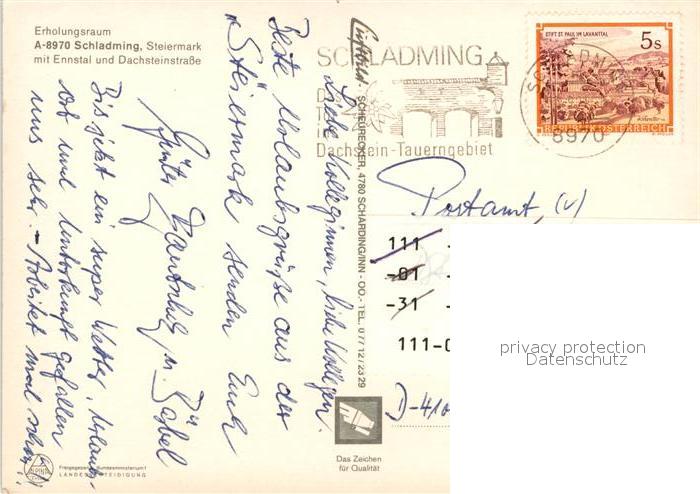 Erholungsraum
A-8970 Schladming, Steiermark
mit Ennstal und Dachsteinstraße
SCHLADMING
Dachstein-Tauerngebiet
STIFT ST. PAUL IM LAVANTTAL
5 S
REPUBLIK ÖSTERREICH
SCHLADMING
8970
Liebe Kolleginnen, liebe Kollegen.
Beste Urlaubsgrüße aus der
"Steiermark senden Euch
Günter u. Bärbel
Bis jetzt ein super Wetter, Urlaubs-
ort und Unterkunft gefallen
uns sehr. - Arbeitet mal schön!!
Luftbild - SCHEURECKER, 4780 SCHÄRDING/INN - OÖ. - TEL. 077 12 / 23 29
Postamt, (V)
111 -
-01 -
-31 -
111-0
D-410
privacy protection
Datenschutz
Das Zeichen
für Qualität
ALPINA
Freigegeben Bundesministerium f.
LANDESVERTEIDIGUNG